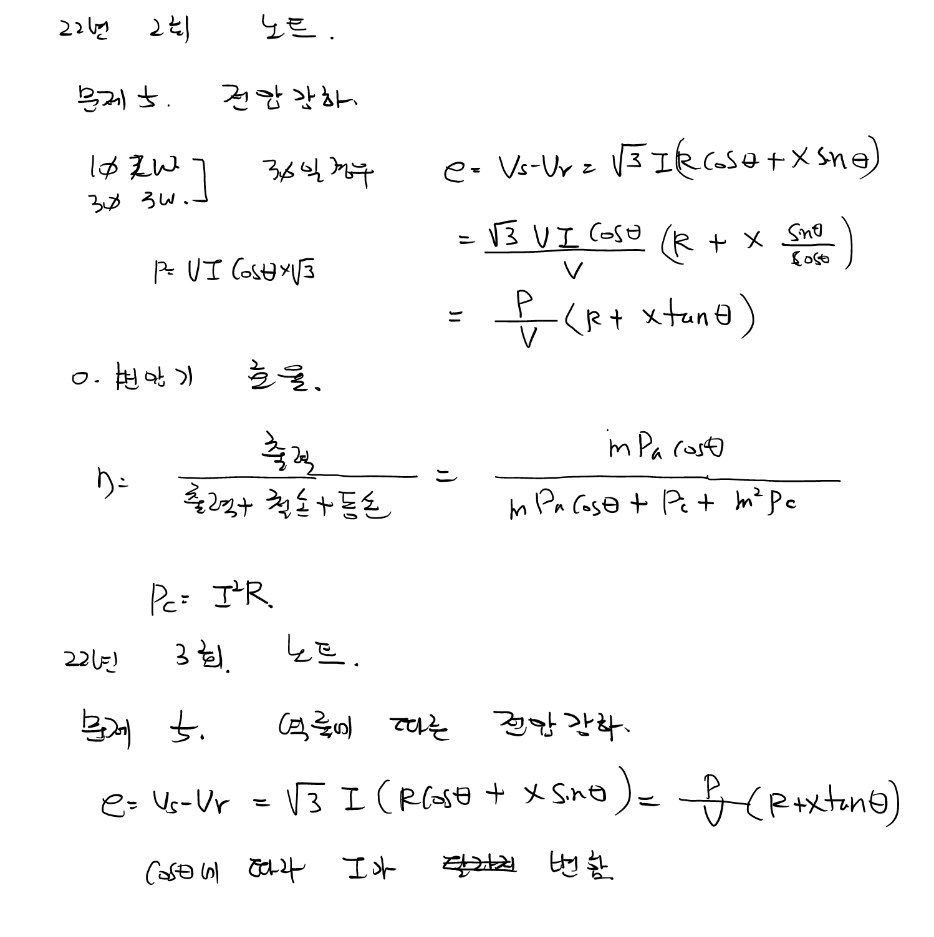 22년 2회 노트.
문제 5. 전압강하.
1ϕ 2W ] 3ϕ일 경우 e = Vs-Vr = √3 I(R cosθ + X sinθ)
3ϕ 3W.
= √3 V I cosθ / V (R + X sinθ / cosθ)
P = VI cosθ×√3
= P / V (R + X tanθ)
0. 변압기 효율.
η = 출력 / 출력 + 철손 + 동손 = m Pa cosθ / m Pa cosθ + Pc + m² Pc
Pc = I²R.
22년 3회. 노트.
문제 5. 역률에 따른 전압강하.
e = Vs-Vr = √3 I (R cosθ + X sinθ) = P / V (R+X tanθ)
cosθ에 따라 I가 변함